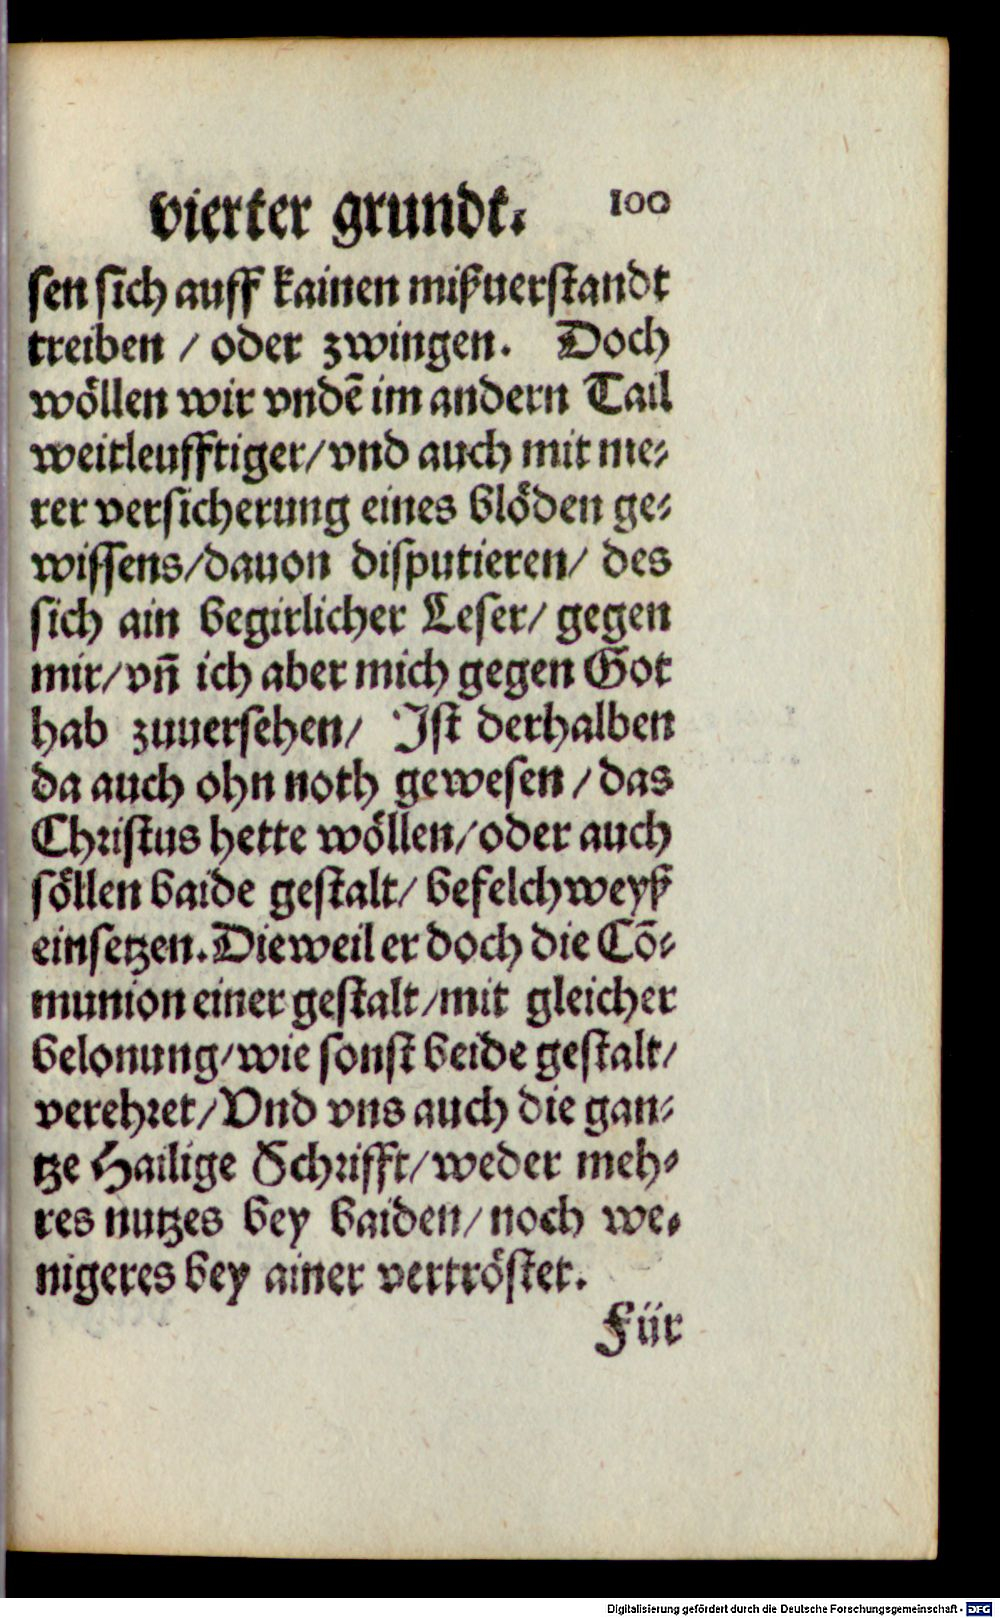 vierter grundt. 100
sen sich auff kainen mißuerstandt
treiben / oder zwingen. Doch
wöllen wir vndē im andern Tail
weitleufftiger/vnd auch mit me⸗
rer versicherung eines blöden ge⸗
wissens/dauon disputieren/ des
sich ain begirlicher Leser/ gegen
mir/vñ ich aber mich gegen Got
hab zuuersehen/ Ist derhalben
da auch ohn noth gewesen / das
Christus hette wöllen/oder auch
söllen baide gestalt/ befelchweyß
einsetzen. Dieweil er doch die Cō⸗
munion einer gestalt/mit gleicher
belonung/wie sonst beide gestalt/
verehret/Vnd vns auch die gan⸗
tze Hailige Schrifft/weder meh⸗
res nutzes bey baiden/noch we⸗
nigeres bey ainer vertröstet.
Für
Digitalisierung gefördert durch die Deutsche Forschungsgemeinschaft - DFG